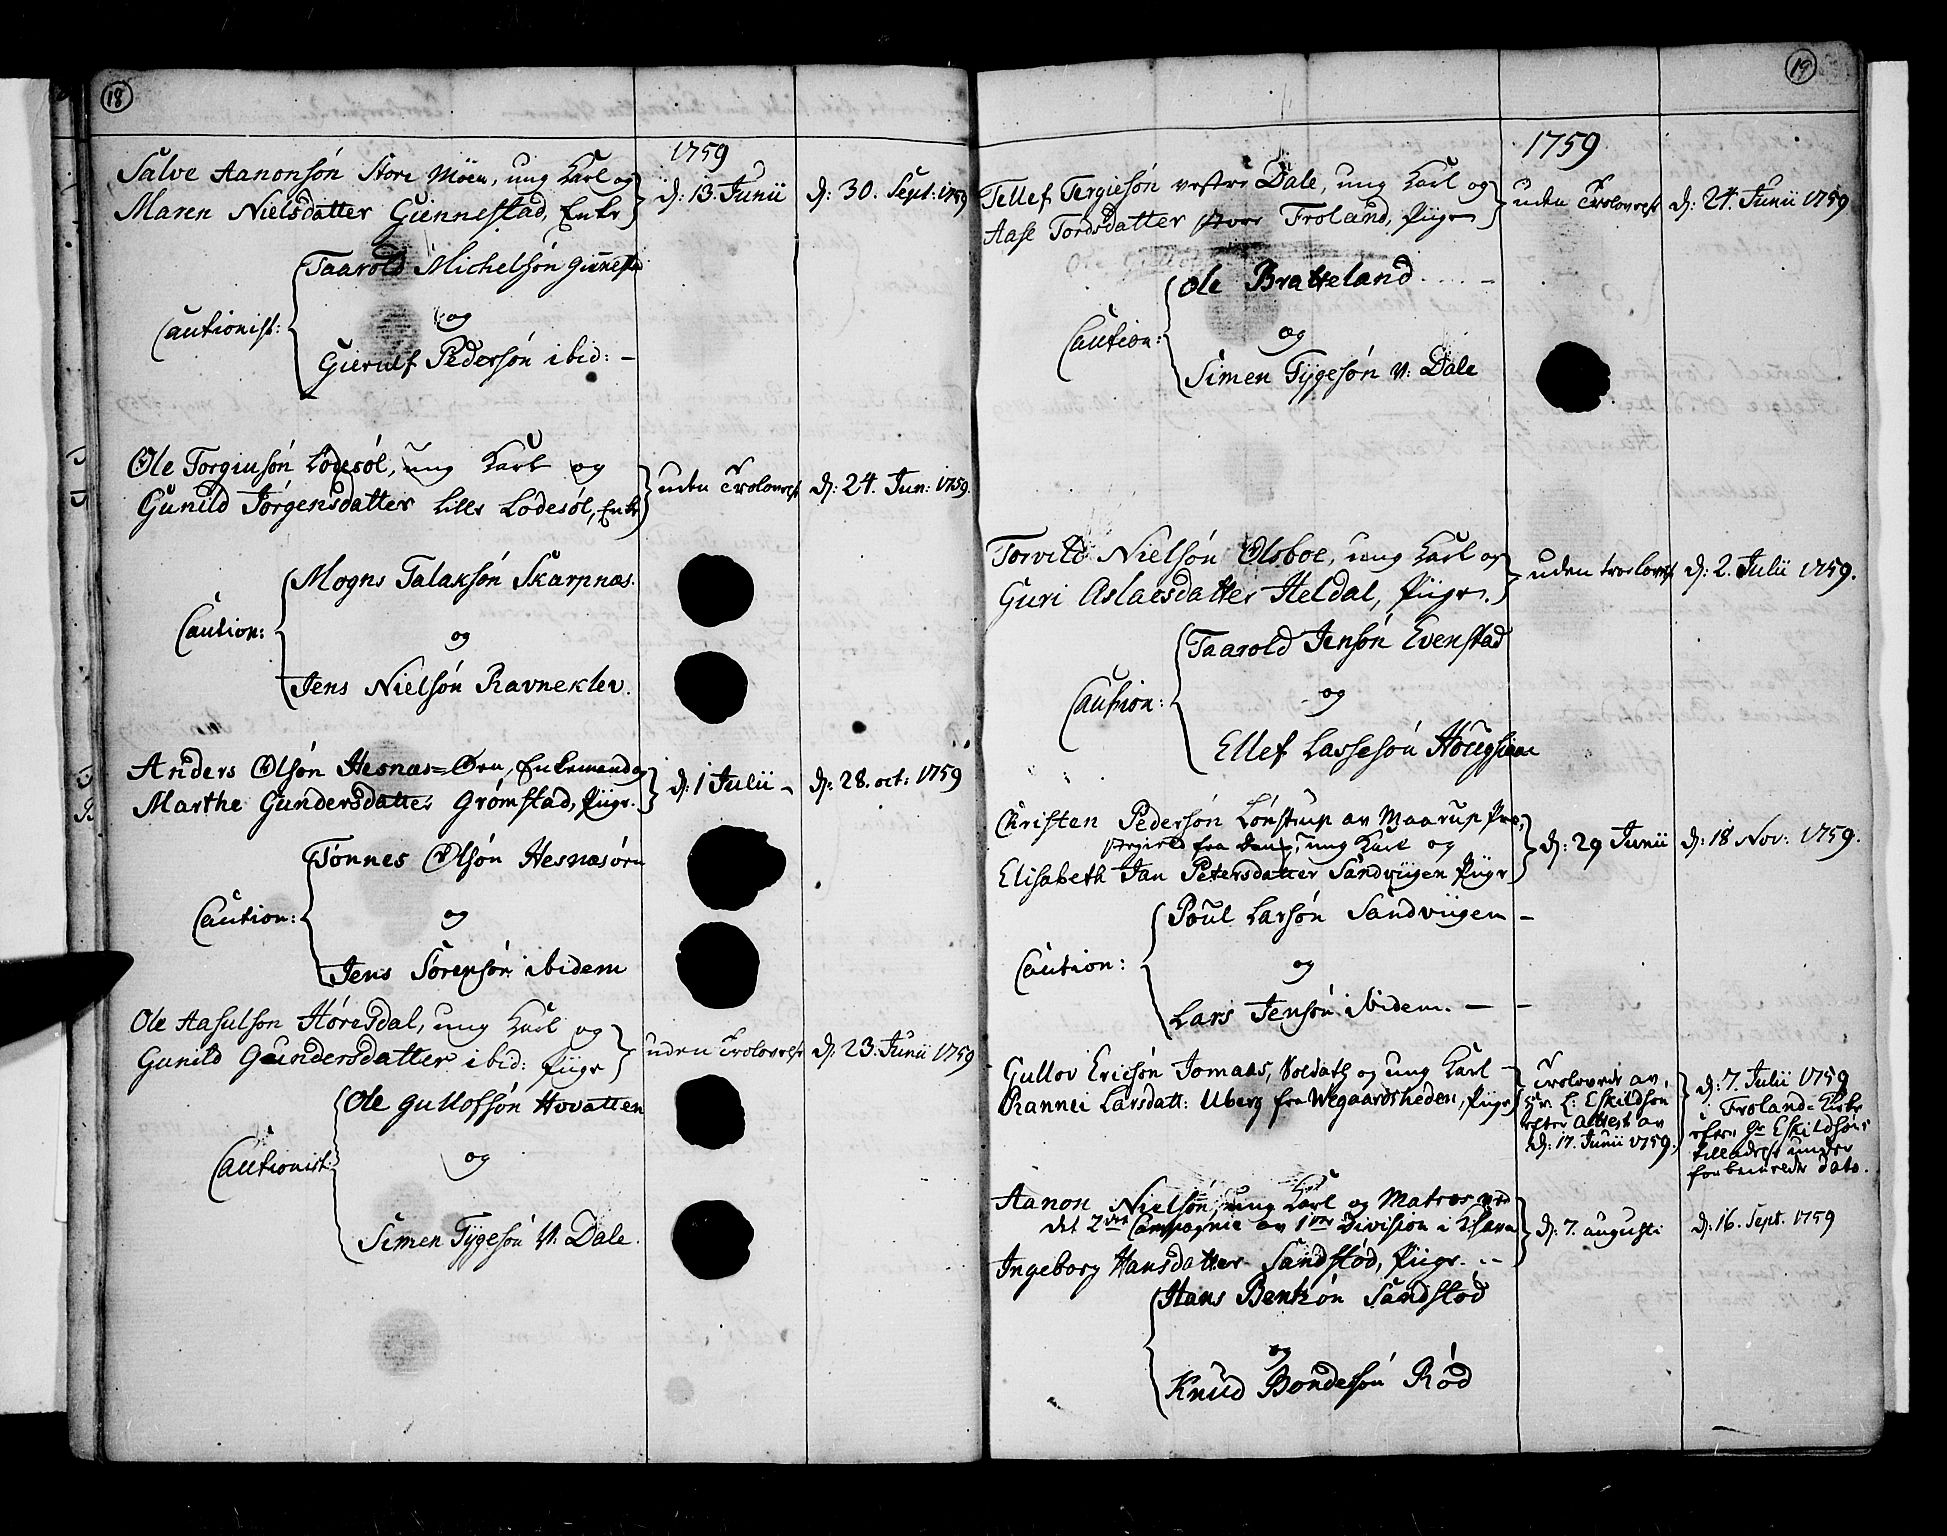 18
1759
Salve Aanonsøn Store Møen, ung Karl og
Maren Nielsdatter Giennestad, Enke
d: 13 Junii
d: 30. Sept: 1759
Taarold Michelsøn
Cautionist:
og
Gierulf Pedersøn ibid: -
Ole Torgiusøn Lodesøl, ung Karl og
Gunild Jørgensdatter Lille Lodesøl, Enke
uden Trolovelse
d: 24. Jun: 1759.
Mogns Talaksøn Skarpnæs.
Caution:
og
Jens Nielsøn Ravneklev.
Anders Olsøn Hesnæs=Øen, Enkemand og
Marthe Gundersdatter Grømstad, Piige.
d: 1 Julii -
d: 28. oct: 1759
Tønnes Olsøn Hesnæsøen
Caution:
og
Jens Sørensøn ibidem
Ole Aasulsøn Høresdal, ung Karl og
Gunild Gundersdatter ibid: Piige
uden Trolovelse
d: 23. Junii 1759
Ole Gullofsøn Hovatten
Cautionist:
og
Simen Tygesøn V. Dale.
19
1759
Tellef Tergiesøn vestre Dale, ung Karl og
Aase Tordsdatter Froland, Piige
uden Trolovelse
d: 24. Junii 1759
Ole Bratteland
Caution:
og
Simen Tygesøn V: Dale
Torvild Nielsøn Olsboe, ung Karl og
Guri Aslacsdatter Heldal, Piige.
uden trolovelse
d: 2. Julii 1759.
Taarold Jensøn Evenstad
Caution:
og
Ellef Lassesøn
Christen Pedersøn Lønstrup av Maarup Præ-
stegield fra Danm:, ung Karl og
Elisabeth Jan Petersdatter Sandviigen Piige
d: 29 Junii
d: 18 Nov: 1759.
Poul Larsøn Sandviigen -
Caution:
og
Lars Jensøn ibidem. - -
Gullov Ericsøn Jomaas, Soldath og ung Karl -
Rannei Larsdatt: Uberg fra Wegaardsheden, Piige
Trolovede av
Hr. L: Eskildsøn
efter Attest av
d: 17. Junii 1759.
d: 7. Julii 1759
i Froland=Kirke
efter Hr Eskildsøns
tilladelse under
forbemeldte dato.
Aanon Nielsøn, ung Karl og Matros ved
det 2det Compagnie av 1ste Division i
Ingeborg Hansdatter Sandstød, Piige. - -
d: 7. augusti
d: 16. Sept. 1759
Hans Bentsøn Sandstød
og
Knud Bondesøn Rød